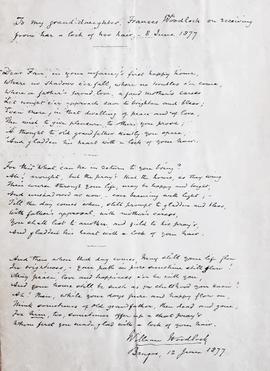 To my grand-daughter, Frances Woodlock on receiving
from her a lock of her hair, - 8 June 1877
Dear Fan, in your infancy's first happy home,
Where no shadows e'er fall, where no troubles e'er come,
Where a father's proud love, a fond mother's cares
Let nought e'er approach save to brighten and bless;
Even there, in that dwelling of peace and of love,
The wish to give pleasure to others you prove;
A thought to old grandfather kindly you spare,
And gladden his heart with a lock of your hair.
For this what can he in return to you bring?
Ah! nought, but the prayer that the hours, as they wing
Their course through your life, may be happy and bright,
And unshadowed as now, one beaming with light;
Till the day comes when, still prompt to gladden and bless,
With father's approval, with mother's caress,
You shall list to another, and yield to his pray'r,
And gladden his heart with a lock of your hair.
And then when that day comes, Heav'n still your life
in brightness, your path in pure sunshine still
Many peace, love and happiness be with you
And your home still be such as in childhood you knew!
Ah! Then, while your days pure and happy flow on,
Think sometimes of old grandfather, then dead and gone,
For him, too, sometimes offer up a short pray'r
Whom first you made glad with a lock of your hair.
William Woodlock
12 June 1877.